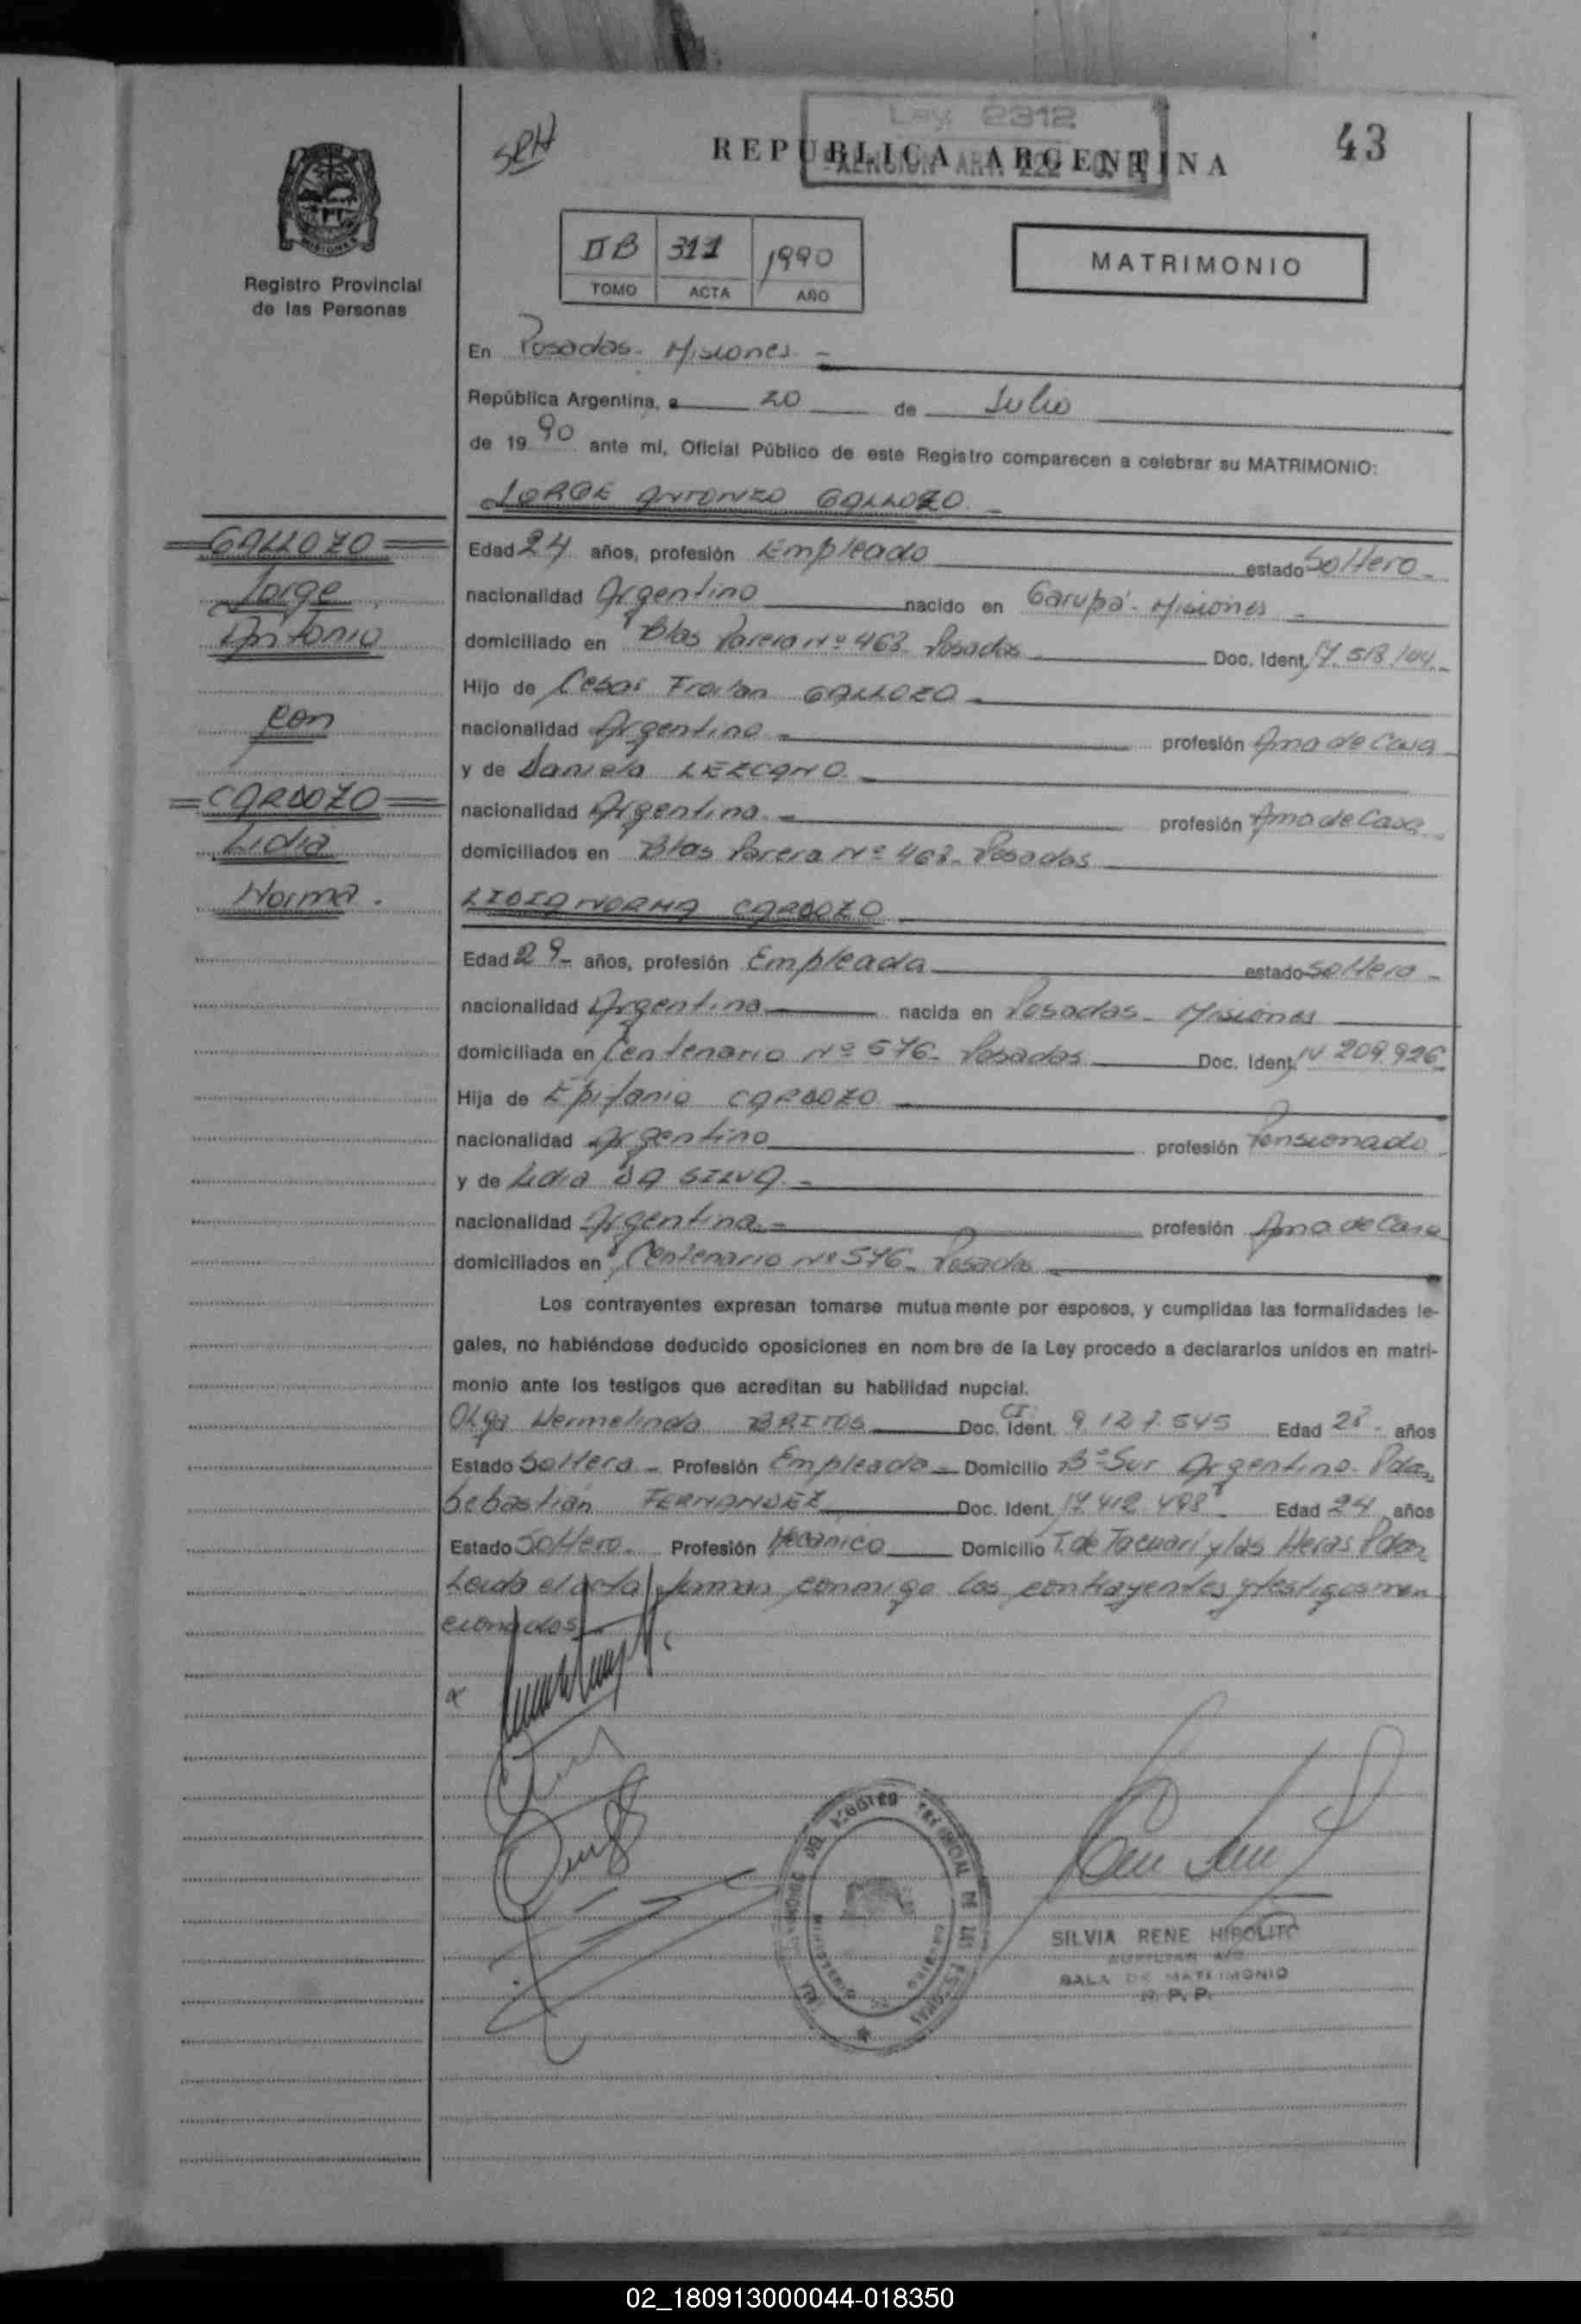 SRH
Ley 2312
43
REPUBLICA ARGENTINA
II B 311 1990
TOMO ACTA AÑO
MATRIMONIO
MISIONES
Registro Provincial
de las Personas
En Posadas - Misiones -
República Argentina, a 20 de Julio
de 19 90 ante mi, Oficial Público de este Registro comparecen a celebrar su MATRIMONIO:
JORGE ANTONIO GALLOZO. -
GALLOZO
Jorge
Antonio
con
CARDOZO
Lidia
Norma.
Edad 24 años, profesión Empleado estado Soltero -
nacionalidad Argentino nacido en Garupá - Misiones -
domiciliado en Blas Parera Nº 463 - Posadas Doc. Ident. 17.518.144 -
Hijo de Cesar Froilan GALLOZO -
nacionalidad Argentina - profesión Ama de Casa
y de Daniela LEZCANO. -
nacionalidad Argentina. - profesión Ama de Casa
domiciliados en Blas Parera Nº 463 - Posadas
LIDIA NORMA CARDOZO
Edad 29 - años, profesión Empleada estado Soltera -
nacionalidad Argentina nacida en Posadas - Misiones
domiciliada en Centenario Nº 576 - Posadas Doc. Ident. 14 209.926
Hija de Epifanio CARDOZO
nacionalidad Argentino profesión Pensionado
y de Lidia DA SILVA. -
nacionalidad Argentina. - profesión Ama de Casa
domiciliados en Centenario Nº 576 - Posadas
Los contrayentes expresan tomarse mutuamente por esposos, y cumplidas las formalidades le-
gales, no habiéndose deducido oposiciones en nombre de la Ley procedo a declararlos unidos en matri-
monio ante los testigos que acreditan su habilidad nupcial.
Olga Hermelinda BRITOS Doc. Ident. CI 9.127.545 Edad 28 - años
Estado Soltera - Profesión Empleada - Domicilio Bº Sur Argentino - Pdas
Sebastián FERNANDEZ Doc. Ident. 17.412.498 Edad 24 años
Estado Soltero. Profesión Mecánico Domicilio T. de Tacuarí y las Heras Pdas
Leida el acta firman conmigo los contrayentes y testigos men
cionados. -
SILVIA RENE HIPOLITO
AUXILIAR A/C
SALA DE MATRIMONIO
R. P. P.
02_180913000044-018350